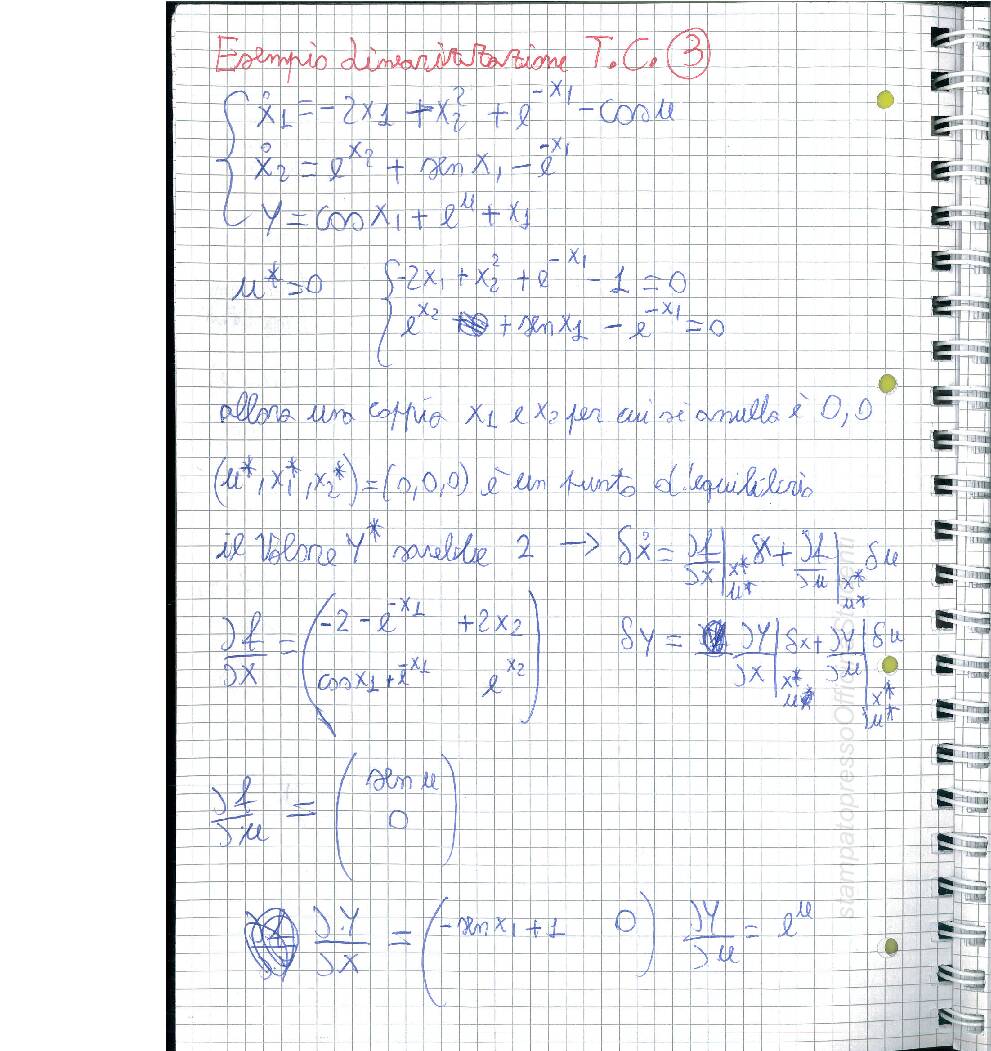 Esempio linearizzazione T.C. 3
ẋ1 = -2x1 + x2² + e^-x1 - cos u
ẋ2 = e^x2 + sen x1 - e^-x1
y = cos x1 + e^u + x1
u* = 0
-2x1 + x2² + e^-x1 - 1 = 0
e^x2 + sen x1 - e^-x1 = 0
allora una coppia x1 e x2 per cui si annulla è 0,0
(u*, x1*, x2*) = (0,0,0) è un punto d'equilibrio
il valore y* sarebbe 2 → δẋ = ∂f/∂x |x* u* δx + ∂f/∂u |x* u* δu
∂f/∂x = ( -2 - e^-x1 +2x2
cos x1 + e^-x1 e^x2 )
δy = ∂y/∂x |x* u* δx + ∂y/∂u |x* u* δu
∂f/∂u = ( sen u
0 )
∂y/∂x = ( -sen x1 + 1 0 ) ∂y/∂u = e^u